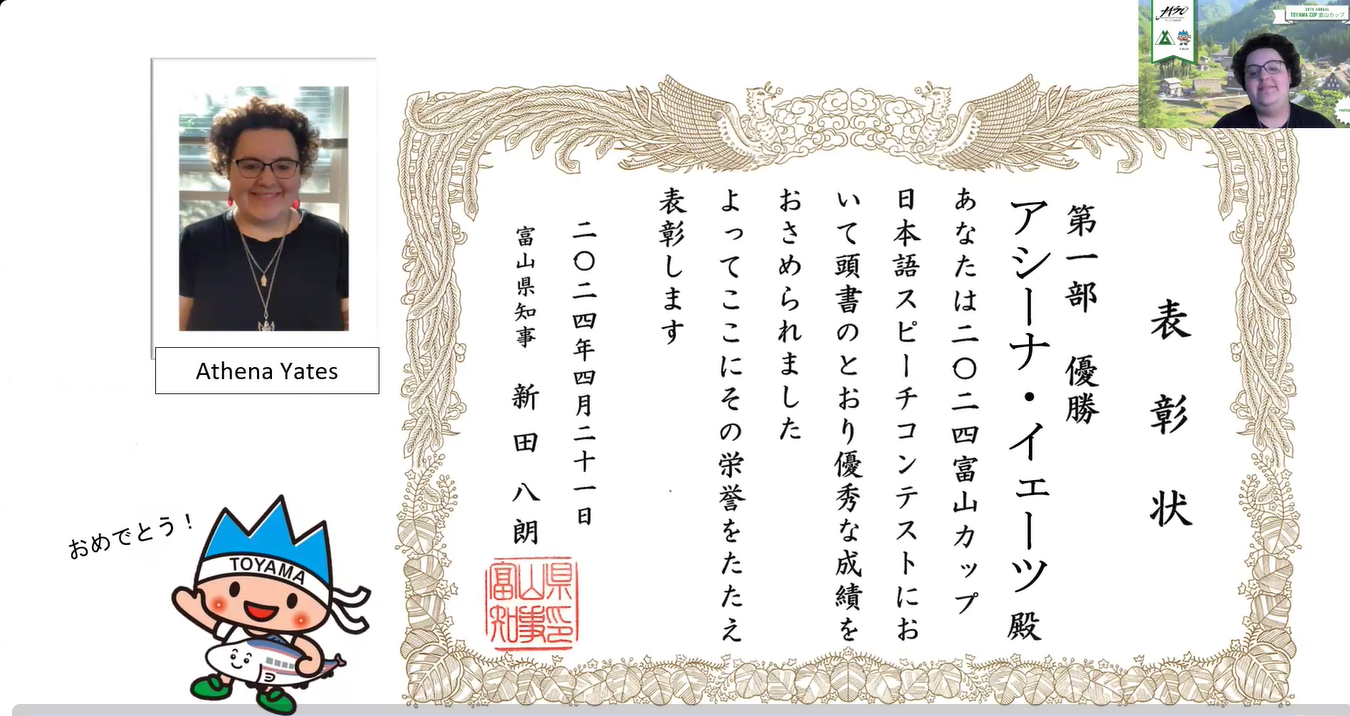 表彰状
第一部　優勝
アシーナ・イェーツ殿
あなたは二〇二四富山カップ
日本語スピーチコンテストにお
いて頭書のとおり優秀な成績を
おさめられました
よってここにその栄誉をたたえ
表彰します
二〇二四年四月二十一日
富山県知事　新田八朗
富山県知事印
Athena Yates
おめでとう！
TOYAMA
TOYAMA CUP 富山カップ